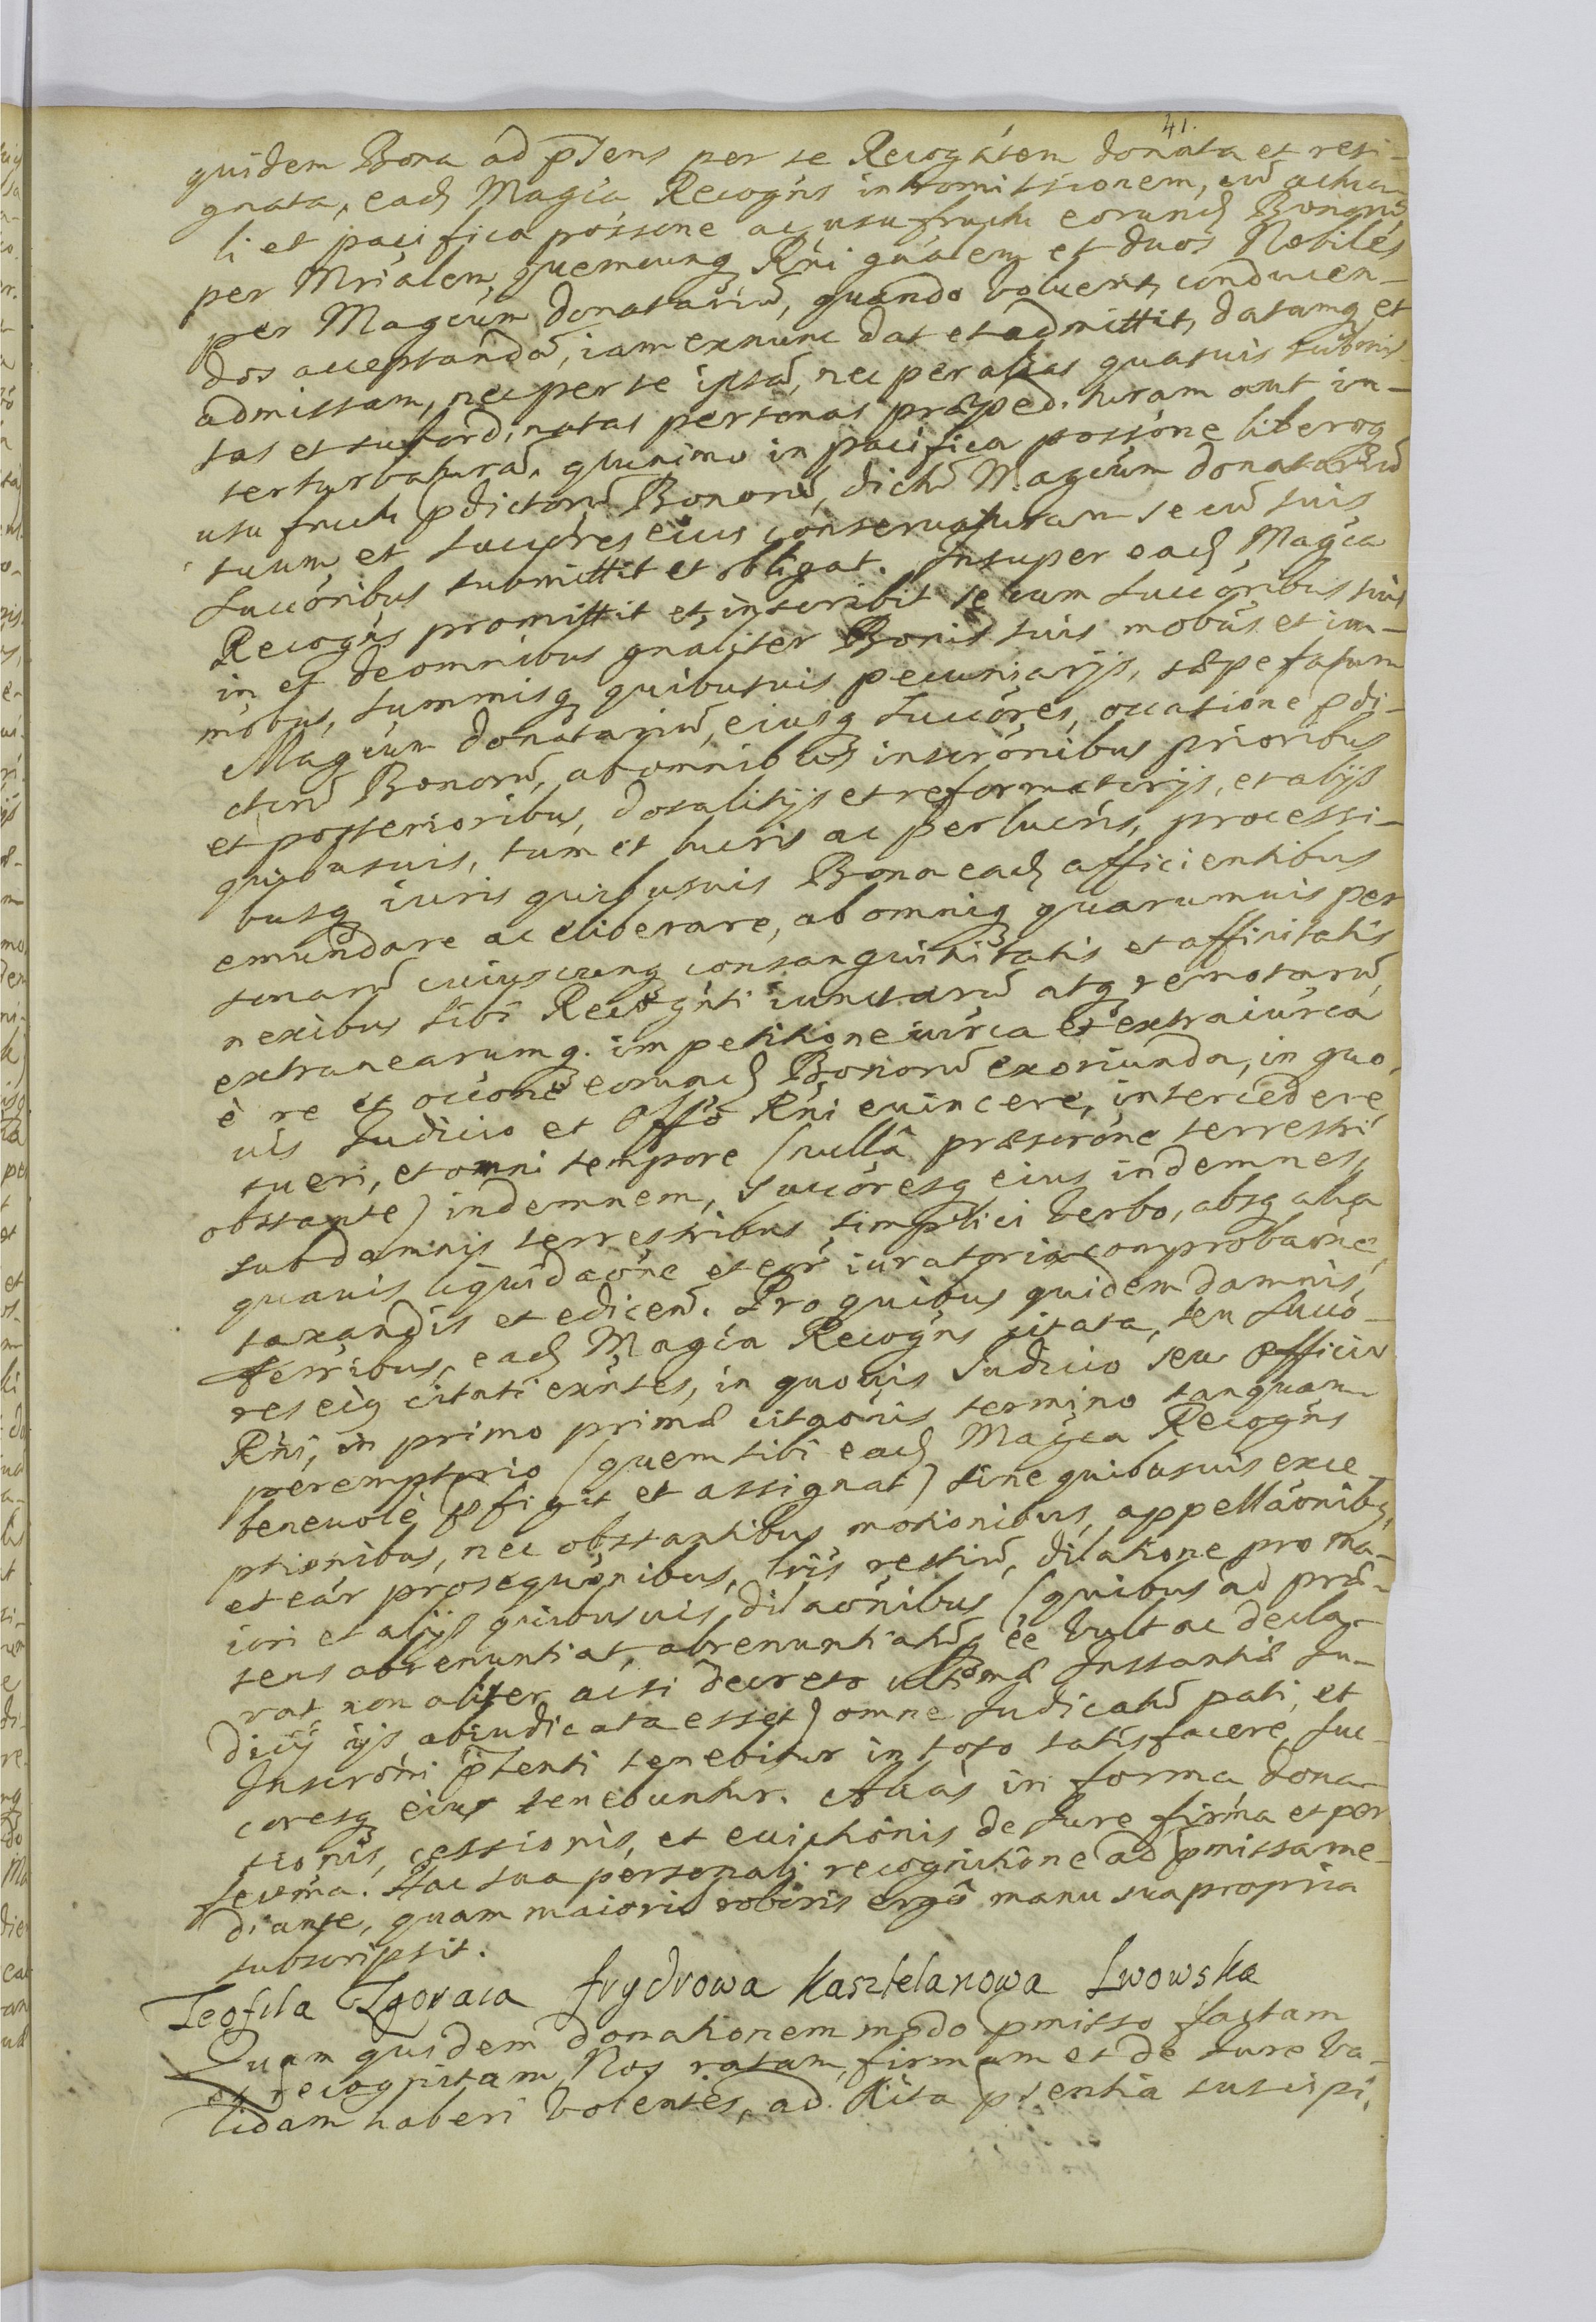 41.
quidem Bona ad p̄sens per se Recogńtem donata et resi-
gnata, eadḡ Magća Recogńs intromissionem, cū actua-
li et pacifica possone ac usufructu eorundḡ Bonorū
per Mńialem, quemcunq̨ Rńi gńalem et duos Nobiles
per Magcúm donatariū, quando voluerit, conducen-
dos acceptandā, iam exnunc dat et admittit, datamq̨ et
admissam, nec per se ipsā, nec per alias quasuis submis-
sas et subordinatas personas præpedituram aut in-
terturbaturā, quinimo in pacifica possóne liberoq̨
usufructu p̄dictorū Bonorū, dictū Magcúm donatariū
suum, et succóres eius conseruaturam se cū suis
succóribus submittit et obligat. Insuper eadḡ Magća
Recogńs promittit et inscribit se cum succóribus suis
in et de omnibus gńaliter Bonis suis mobús et im-
mobus, summisq̨ quibusuis pecuniarijs, sæpefatum
Magcúm donatariū, eiusq̨ succóres, occasione p̄di-
ctorū Bonorū, ab omnibus inscrónibus prioribus
et posterioribus, dotalitijs et reformatorijs, et alijs
quibusuis, tum et lucris ac perlucris, processi-
busq̨ iuris quibusuis Bona eadḡ afficientibus
emundare ac eliberare, ab omniq̨ quarumuis per
sonarū cuiuscunq̨ consanguinitatis et affinitatis
nexibus sibi Recogńti iunctarū atq̨ remotarū,
extranearumq̨ impetitione iurca et extraiurca
è re et occóne eorundḡ Bonorū exoriunda, in quo-
uis Iudicio et Offó Rńi euincere, intercedere,
tueri, et omni tempore (nullâ præscróne terrestri
obstante) indemnem, succóresq̨ eius indemnes,
sub damnis terrestribus simplici verbo, absq̨ alia
quauis liquidacóne et eór iuratoria comprobacóne,
taxandis et edicen. Pro quibus quidem damnis,
ferribus, eadḡ Magća Recogńs citata, seu succó-
res eiq̨ citati exńtes, in quouis Iudicio seu officio
Rńi, in primo primæ citaónis termino tanquam
peremptorio (quem sibi eadḡ Magća Recogńs
beneuolè p̄figit et assignat) sine quibusuis exce-
ptionibus, nec obstantibus motionibus, appellaónibq̨,
et eár prosequónibus, lris restiū, dilatione pro ma-
iori et alijs quibusuis dilaónibus (quibus ad præ-
sens abrenuntiat, abrenuntiatūq̨ ée vult ac decla-
rat non aliter ac si decreto ultimæ Instantiæ Iu-
dicij ijs abiudicata esset) omne Iudicatū pati, et
Inscróni p̄senti tenebitur in toto satisfacere, suc-
coresq̨ eius tenebuntur. Aliàs in forma dona-
tionis, cessionis, et euictionis de Iure firma et per
fecta. Hac sua personali recognitione ad p̄missa me-
diante, quam maioris roboris ergô manu sua propria
subscripsit.
Teofila Zgoraia frydrowa Kasztelanowa Lwowska
Quam quidem donationem modo p̄misso factam
et recognitam Nos ratam, firmam et de Iure va-
lidam haberi volentes, ad Acta p̄sentia suscipi,